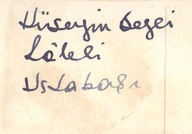 Hüseyin Sezei
Lâleli
Ustabaşı